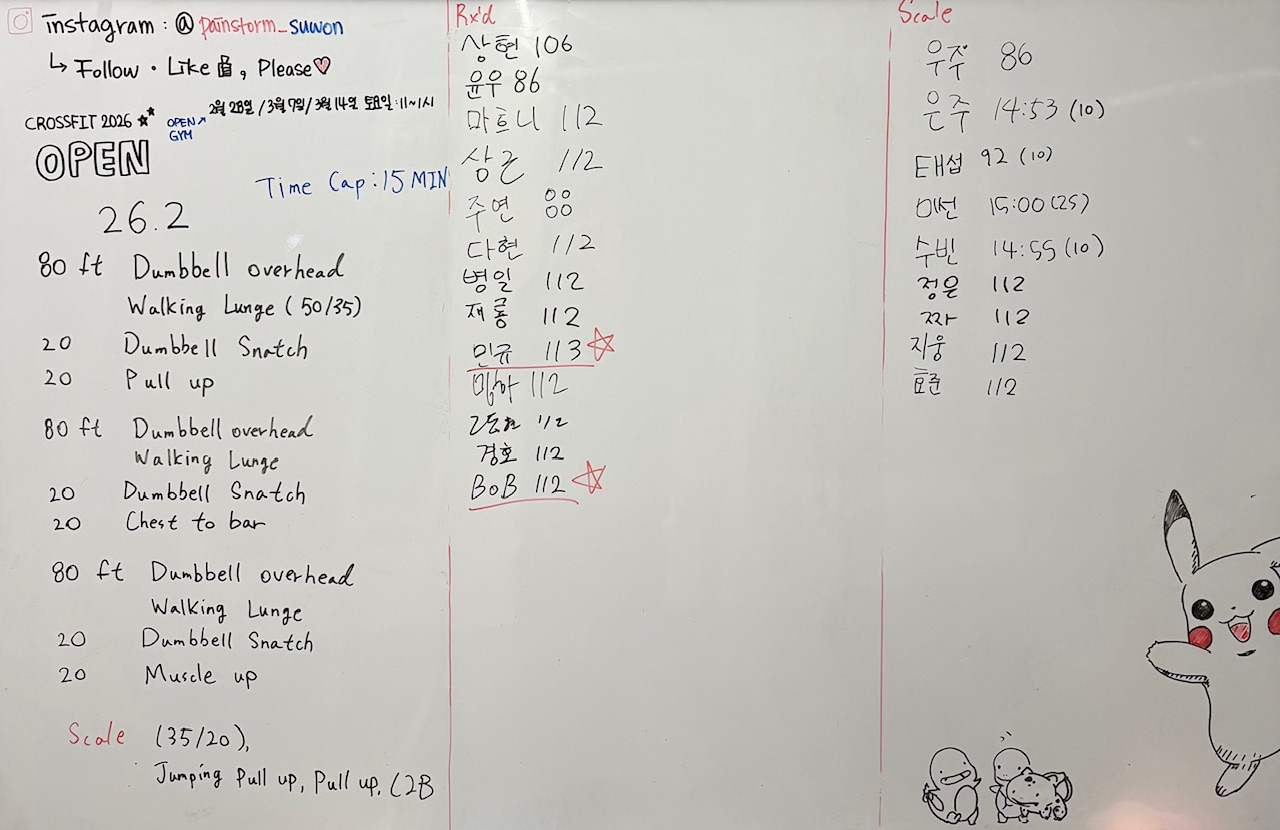 instagram : @painstorm_suwon
↳ Follow · Like, Please♡
2월 28일 / 3월 7일 / 3월 14일 토요일 : 11~1시
CROSSFIT 2026
OPEN↗
GYM
OPEN
Time Cap : 15 MIN
26.2
80 ft Dumbbell overhead
Walking Lunge (50/35)
20 Dumbbell Snatch
20 Pull up
80 ft Dumbbell overhead
Walking Lunge
20 Dumbbell Snatch
20 Chest to bar
80 ft Dumbbell overhead
Walking Lunge
20 Dumbbell Snatch
20 Muscle up
Scale (35/20),
Jumping Pull up, Pull up, C2B
Rx'd
상현 106
윤우 86
마트니 112
상근 112
주연 88
다현 112
병일 112
재룡 112
민규 113 ☆
112
112
경호 112
BoB 112 ☆
Scale
우주 86
은주 14:53 (10)
태섭 92 (10)
미선 15:00 (25)
수빈 14:55 (10)
정은 112
짜 112
지웅 112
효준 112